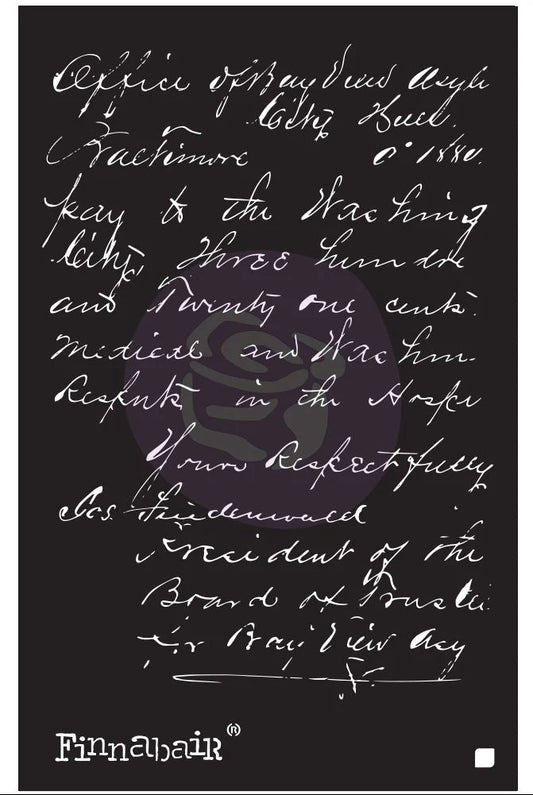 Office of Bay View Asyl
City Hall.
Baltimore 1880.
pay to the Washing
City, Three hundre
and Twenty one cents.
Medical and Washin
in the Hospi
Yours Respectfully
Jos. Friedenwald
President of the
Board of Trustee
for Bay View Asy
Finnabair (R)